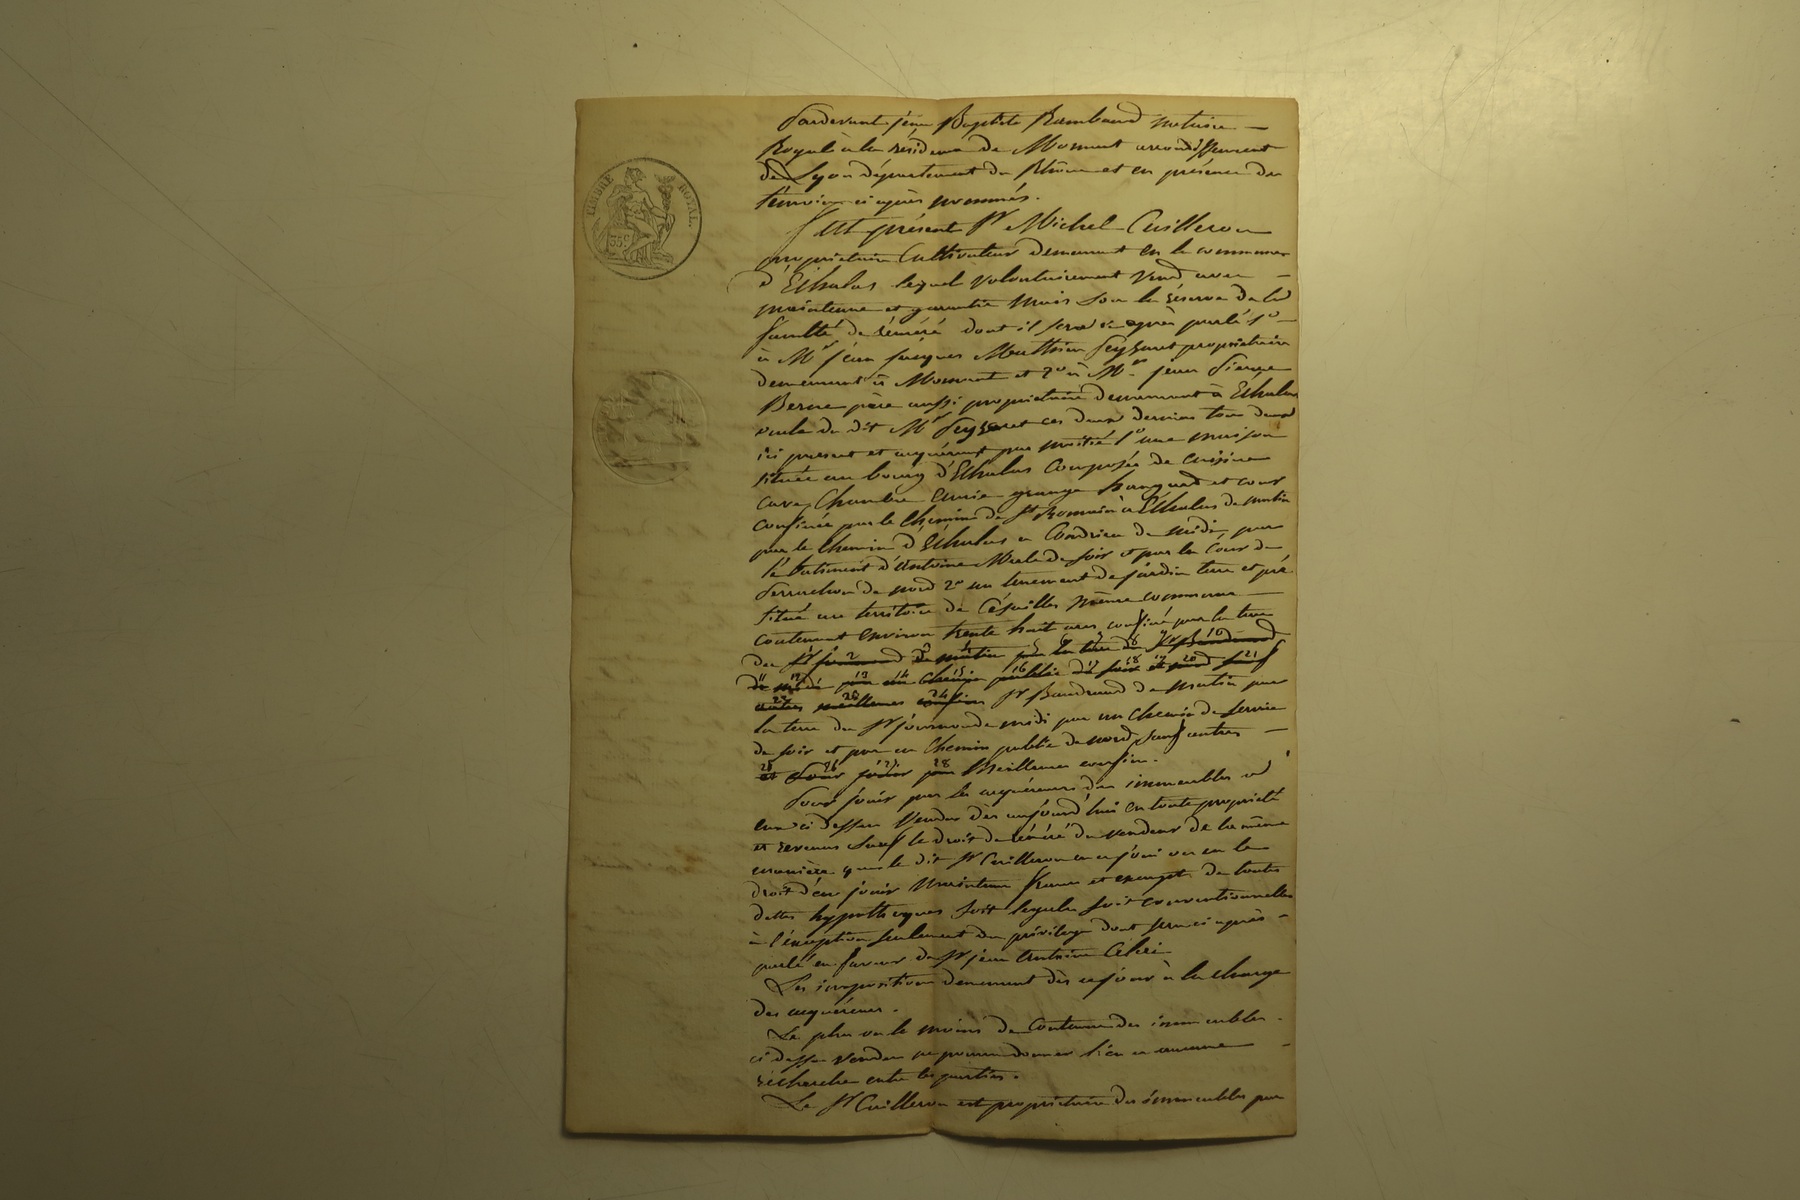 TIMBRE ROYAL
35c
Pardevant jean Baptiste Rambaud notaire
Royal à la résidence de Mornant arrondissement
de Lyon département du Rhône et en présence des
témoins ci après nommés.
Est présent Sr Michel Cuilleron
propriétaire Cultivateur demeurant en la commune
d'Echalas lequel volontairement vend avec
maintenue et garantie mais sous la réserve de la
faculté de réméré dont il sera ci après parlé 1o
à Mr jean jacques Matthieu Peyzaret propriétaire
demeurant à Mornant et 2o à Mr jean Pierre
Berne père aussi propriétaire demeurant à Echalas
du dit Mr Peyzaret ces deux derniers tous deux
ici présent et acquérant par moitié 1o une maison
située au bourg d'Echalas Composée de cuisine
cave, Chambre Ecurie grange hangard et cour
confinée par le Chemin de St Romain à Echalas de matin
par le Chemin d'Echalas à Condrieu de midi, par
le batiment d'Antoine de soir et par la Cour de
de nord 2o un tenement de jardin terre et pré
situé au territoire de même commune
contenant environ trente huit ares, confiné par la terre
du Sr 2 3 de matin 5 6 la terre 7 du 8 Sr 9 10
11 de midi 12 par 13 un 14 Chemin 15 public 16 du 17 soir 18 et 19 nord 20 sauf 21
autres 22 meilleures 23 confins 24 Sr de matin par
la terre du Sr de midi par un Chemin de service
de soir et par un Chemin public de nord, sauf autres
25 et 26 Pour 27 jouir 28 par Meilleures confins.
Pour jouir par les acquéreurs des immeubles à
eux ci dessus Vendus dès aujourd'hui en toute propriété
et revenus Sauf le droit de réméré du vendeur de la même
manière que le dit Sr Cuilleron en a joui ou eu le
droit d'en jouir Maintenu franc et exempt de toutes
dettes hypothèques soit legales soit conventionnelles
à l'exception seulement du privilege dont sera ci après
parlé en faveur du Sr jean Antoine
Les impositions demeurent dès ce jour à la charge
des acquéreurs.
Le plus ou le moins de Contenue des immeubles
ci dessus Vendus ne pourra donner lieu à aucune
recherche entre les parties.
Le Sr Cuilleron est propriétaire des immeubles par